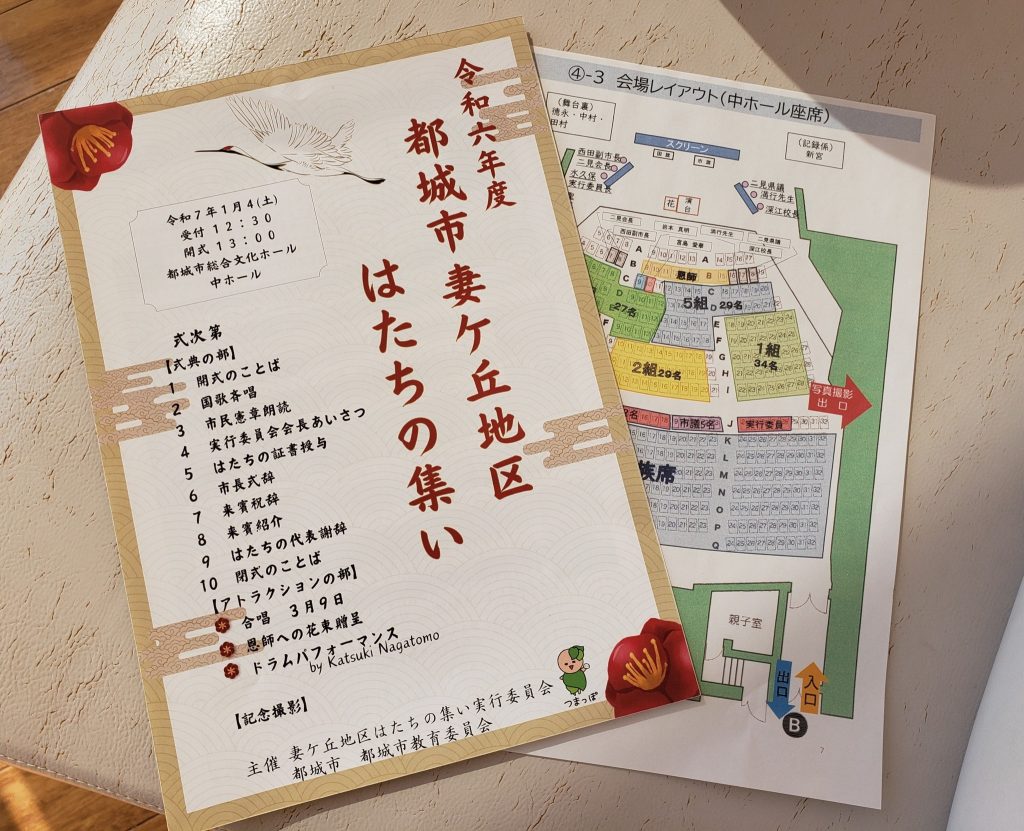 令和六年度
都城市妻ケ丘地区
はたちの集い
令和7年1月4(土)
受付 12:30
開式 13:00
都城市総合文化ホール
中ホール
式次第
【式典の部】
1 開式のことば
2 国歌斉唱
3 市民憲章朗読
4 実行委員会会長あいさつ
5 はたちの証書授与
6 市長式辞
7 来賓祝辞
8 来賓紹介
9 はたちの代表謝辞
10 閉式のことば
【アトラクションの部】
合唱 3月9日
恩師への花束贈呈
ドラムパフォーマンス
by Katsuki Nagatomo
【記念撮影】
つまっぽ
主催 妻ケ丘地区はたちの集い実行委員会
都城市 都城市教育委員会
④-3 会場レイアウト(中ホール座席)
(舞台裏)
徳永・中村・
田村
スクリーン
国旗 市旗
(記録係)
新宮
西田副市長
二見会長
水久保
実行委員長
二見県議
満行先生
深江校長
花 演台
二見会長
西田副市長
満行先生
二見県議
深江校長
恩師
5組 29名
27名
1組
34名
2組 29名
写真撮影
出口
市議5名
実行委員
族席
A
B
C
D
E
F
G
H
I
J
K
L
M
N
O
P
Q
親子室
出口
入口
B
7